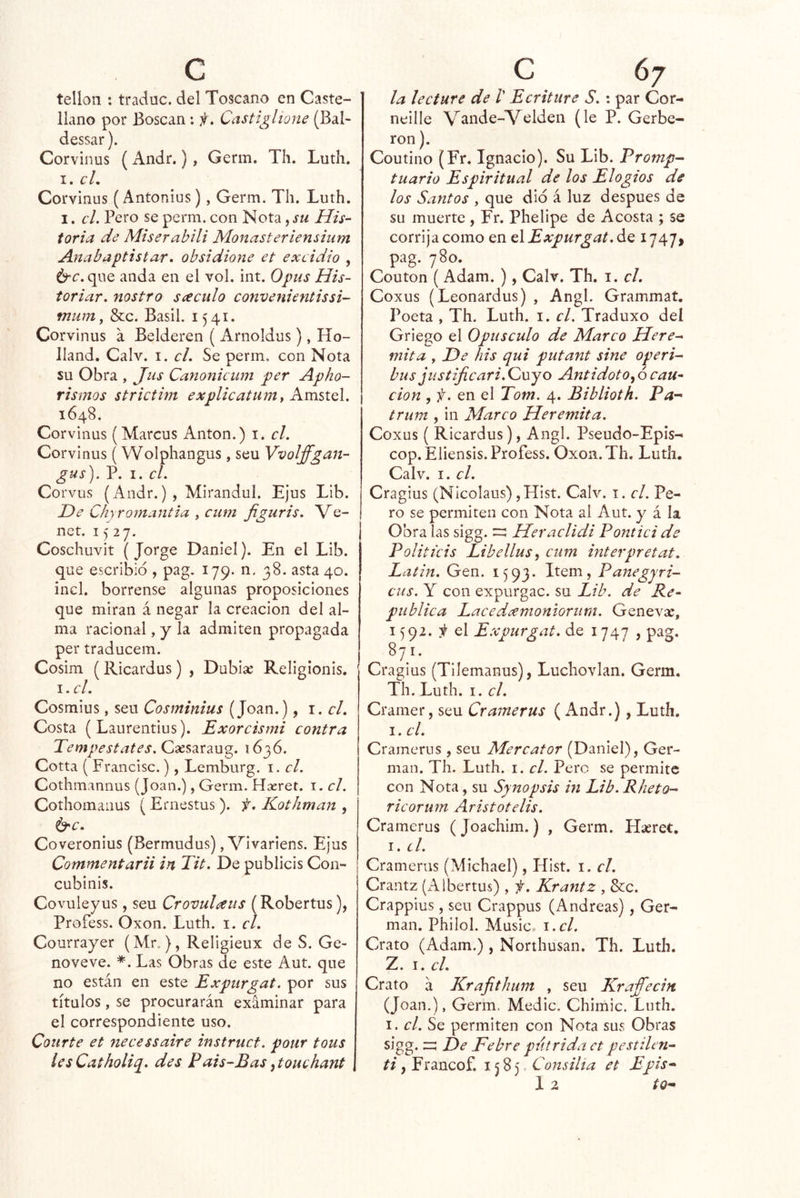 C
tellon : traduc. del Toscano en Caste-
llano por Boscan : ℣. Castiglione (Bal-
dessar).
Corvinus (Andr.), Germ. Th. Luth.
1. cl.
Corvinus (Antonius), Germ. Th. Luth.
1. cl. Pero se perm. con Nota, su His-
toria de Miserabili Monasteriensium
Anabaptistar. obsidione et excidio,
&c. que anda en el vol. int. Opus His-
toriar. nostro sæculo convenientissi-
mum, &c. Basil. 1541.
Corvinus à Belderen (Arnoldus), Ho-
lland. Calv. 1. cl. Se perm. con Nota
su Obra, Jus Canonicum per Apho-
rismos strictim explicatum, Amstel.
1648.
Corvinus (Marcus Anton.) 1. cl.
Corvinus (Wolphangus, seu Vvolffgan-
gus). P. 1. cl.
Corvus (Andr.), Mirandul. Ejus Lib.
De Chyromantia, cum figuris. Ve-
net. 1527.
Coschuvit (Jorge Daniel). En el Lib.
que escribió, pag. 179. n. 38. asta 40.
incl. borrense algunas proposiciones
que miran á negar la creacion del al-
ma racional, y la admiten propagada
per traducem.
Cosim (Ricardus), Dubiæ Religionis.
1. cl.
Cosmius, seu Cosminius (Joan.), 1. cl.
Costa (Laurentius). Exorcismi contra
Tempestates. Cæsaraug. 1636.
Cotta (Francisc.), Lemburg. 1. cl.
Cothmannus (Joan.), Germ. Hæret. 1. cl.
Cothomanus (Ernestus). ℣. Kothman,
&c.
Coveronius (Bermudus), Vivariens. Ejus
Commentarii in Tit. De publicis Con-
cubinis.
Covuleyus, seu Crovulæus (Robertus),
Profess. Oxon. Luth. 1. cl.
Courrayer (Mr.), Religieux de S. Ge-
noveve. *. Las Obras de este Aut. que
no están en este Expurgat. por sus
títulos, se procurarán exâminar para
el correspondiente uso.
Courte et necessaire instruct. pour tous
les Catholiq. des Pais-Bas, touchant
C 67
la lecture de l' Ecriture S. : par Cor-
neille Vande-Velden (le P. Gerbe-
ron).
Coutino (Fr. Ignacio). Su Lib. Promp-
tuario Espiritual de los Elogios de
los Santos, que dió á luz despues de
su muerte, Fr. Phelipe de Acosta; se
corrija como en el Expurgat. de 1747,
pag. 780.
Couton (Adam.), Calv. Th. 1. cl.
Coxus (Leonardus), Angl. Grammat.
Poeta, Th. Luth. 1. cl. Traduxo del
Griego el Opusculo de Marco Here-
mita, De his qui putant sine operi-
bus justificari. Cuyo Antidoto, ó cau-
cion, ℣. en el Tom. 4. Biblioth. Pa-
trum, in Marco Heremita.
Coxus (Ricardus), Angl. Pseudo-Epis-
cop. Eliensis. Profess. Oxon. Th. Luth.
Calv. 1. cl.
Cragius (Nicolaus), Hist. Calv. 1. cl. Pe-
ro se permiten con Nota al Aut. y á la
Obra las sigg. = Heraclidi Pontici de
Politicis Libellus, cum interpretat.
Latin. Gen. 1593. Item, Panegyri-
cus. Y con expurgac. su Lib. de Re-
publica Lacedæmoniorum. Genevæ,
1592. ℣ el Expurgat. de 1747, pag.
871.
Cragius (Tilemanus), Luchovlan. Germ.
Th. Luth. 1. cl.
Cramer, seu Cramerus (Andr.), Luth.
1. cl.
Cramerus, seu Mercator (Daniel), Ger-
man. Th. Luth. 1. cl. Pero se permite
con Nota, su Synopsis in Lib. Rheto-
ricorum Aristotelis.
Cramerus (Joachim.), Germ. Hæret.
1. cl.
Cramerus (Michael), Hist. 1. cl.
Crantz (Albertus), ℣. Krantz, &c.
Crappius, seu Crappus (Andreas), Ger-
man. Philol. Music. 1. cl.
Crato (Adam.), Northusan. Th. Luth.
Z. 1. cl.
Crato à Krafithum, seu Kraffecin
(Joan.), Germ. Medic. Chimic. Luth.
1. cl. Se permiten con Nota sus Obras
sigg. = De Febre pútrida et pestilen-
ti, Francof. 1585. Consilia et Epis-
l 2 to-